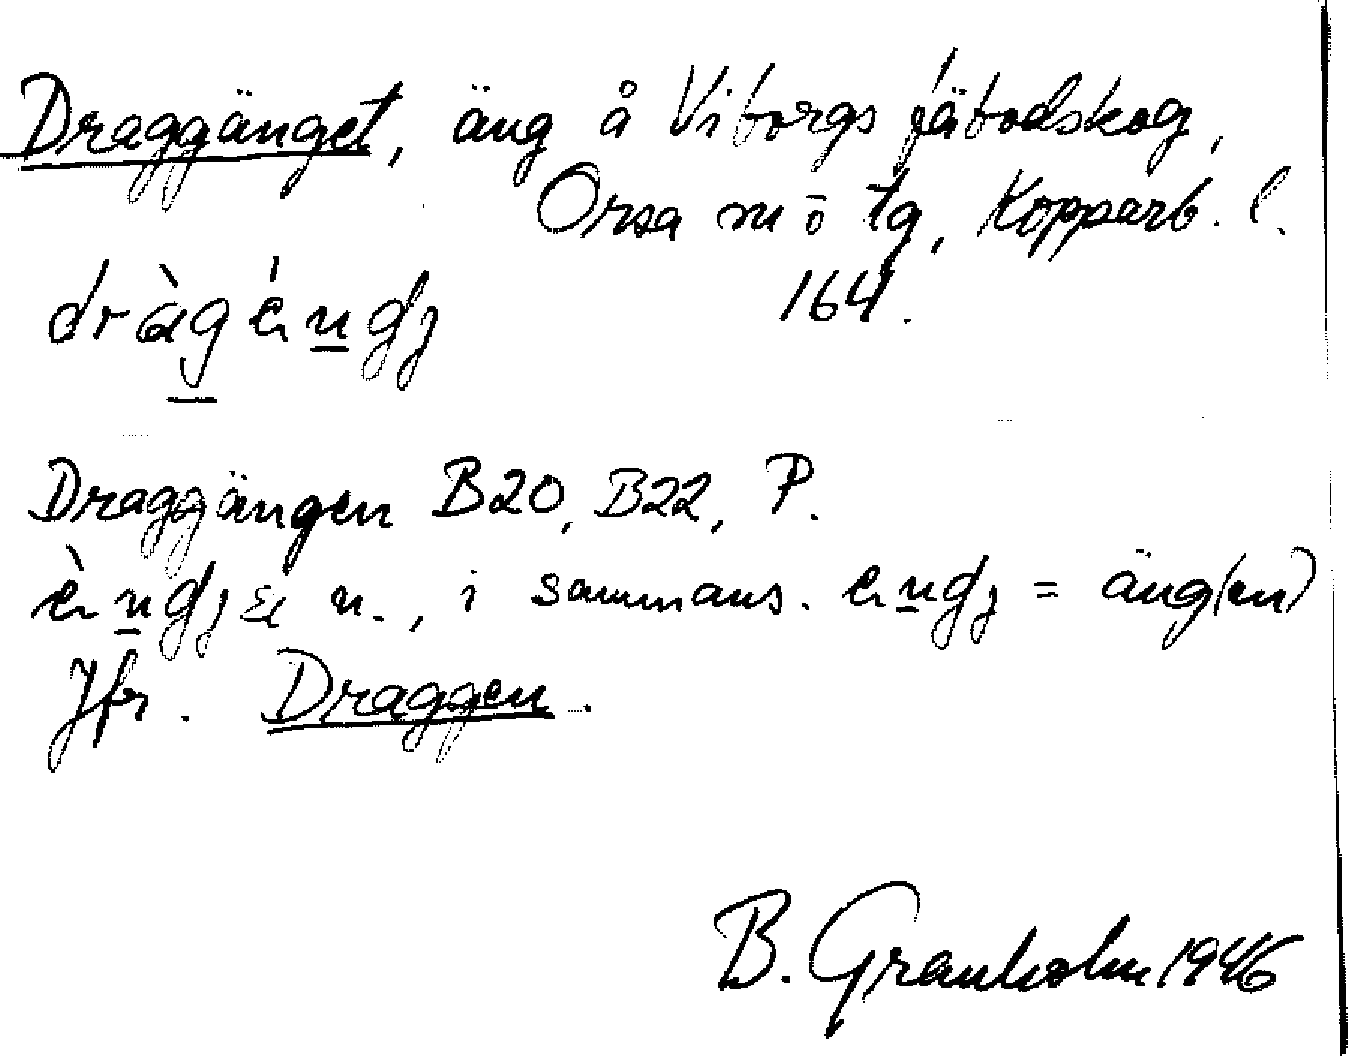 Draggänget, äng å Viborgs fäbodskog,
Orsa sn o tg, Kopparb. l.
164.
Draggängen B20, B22, P.
n., i sammans. = äng(en)
Jfr. Draggen.
B. Granholm 1946